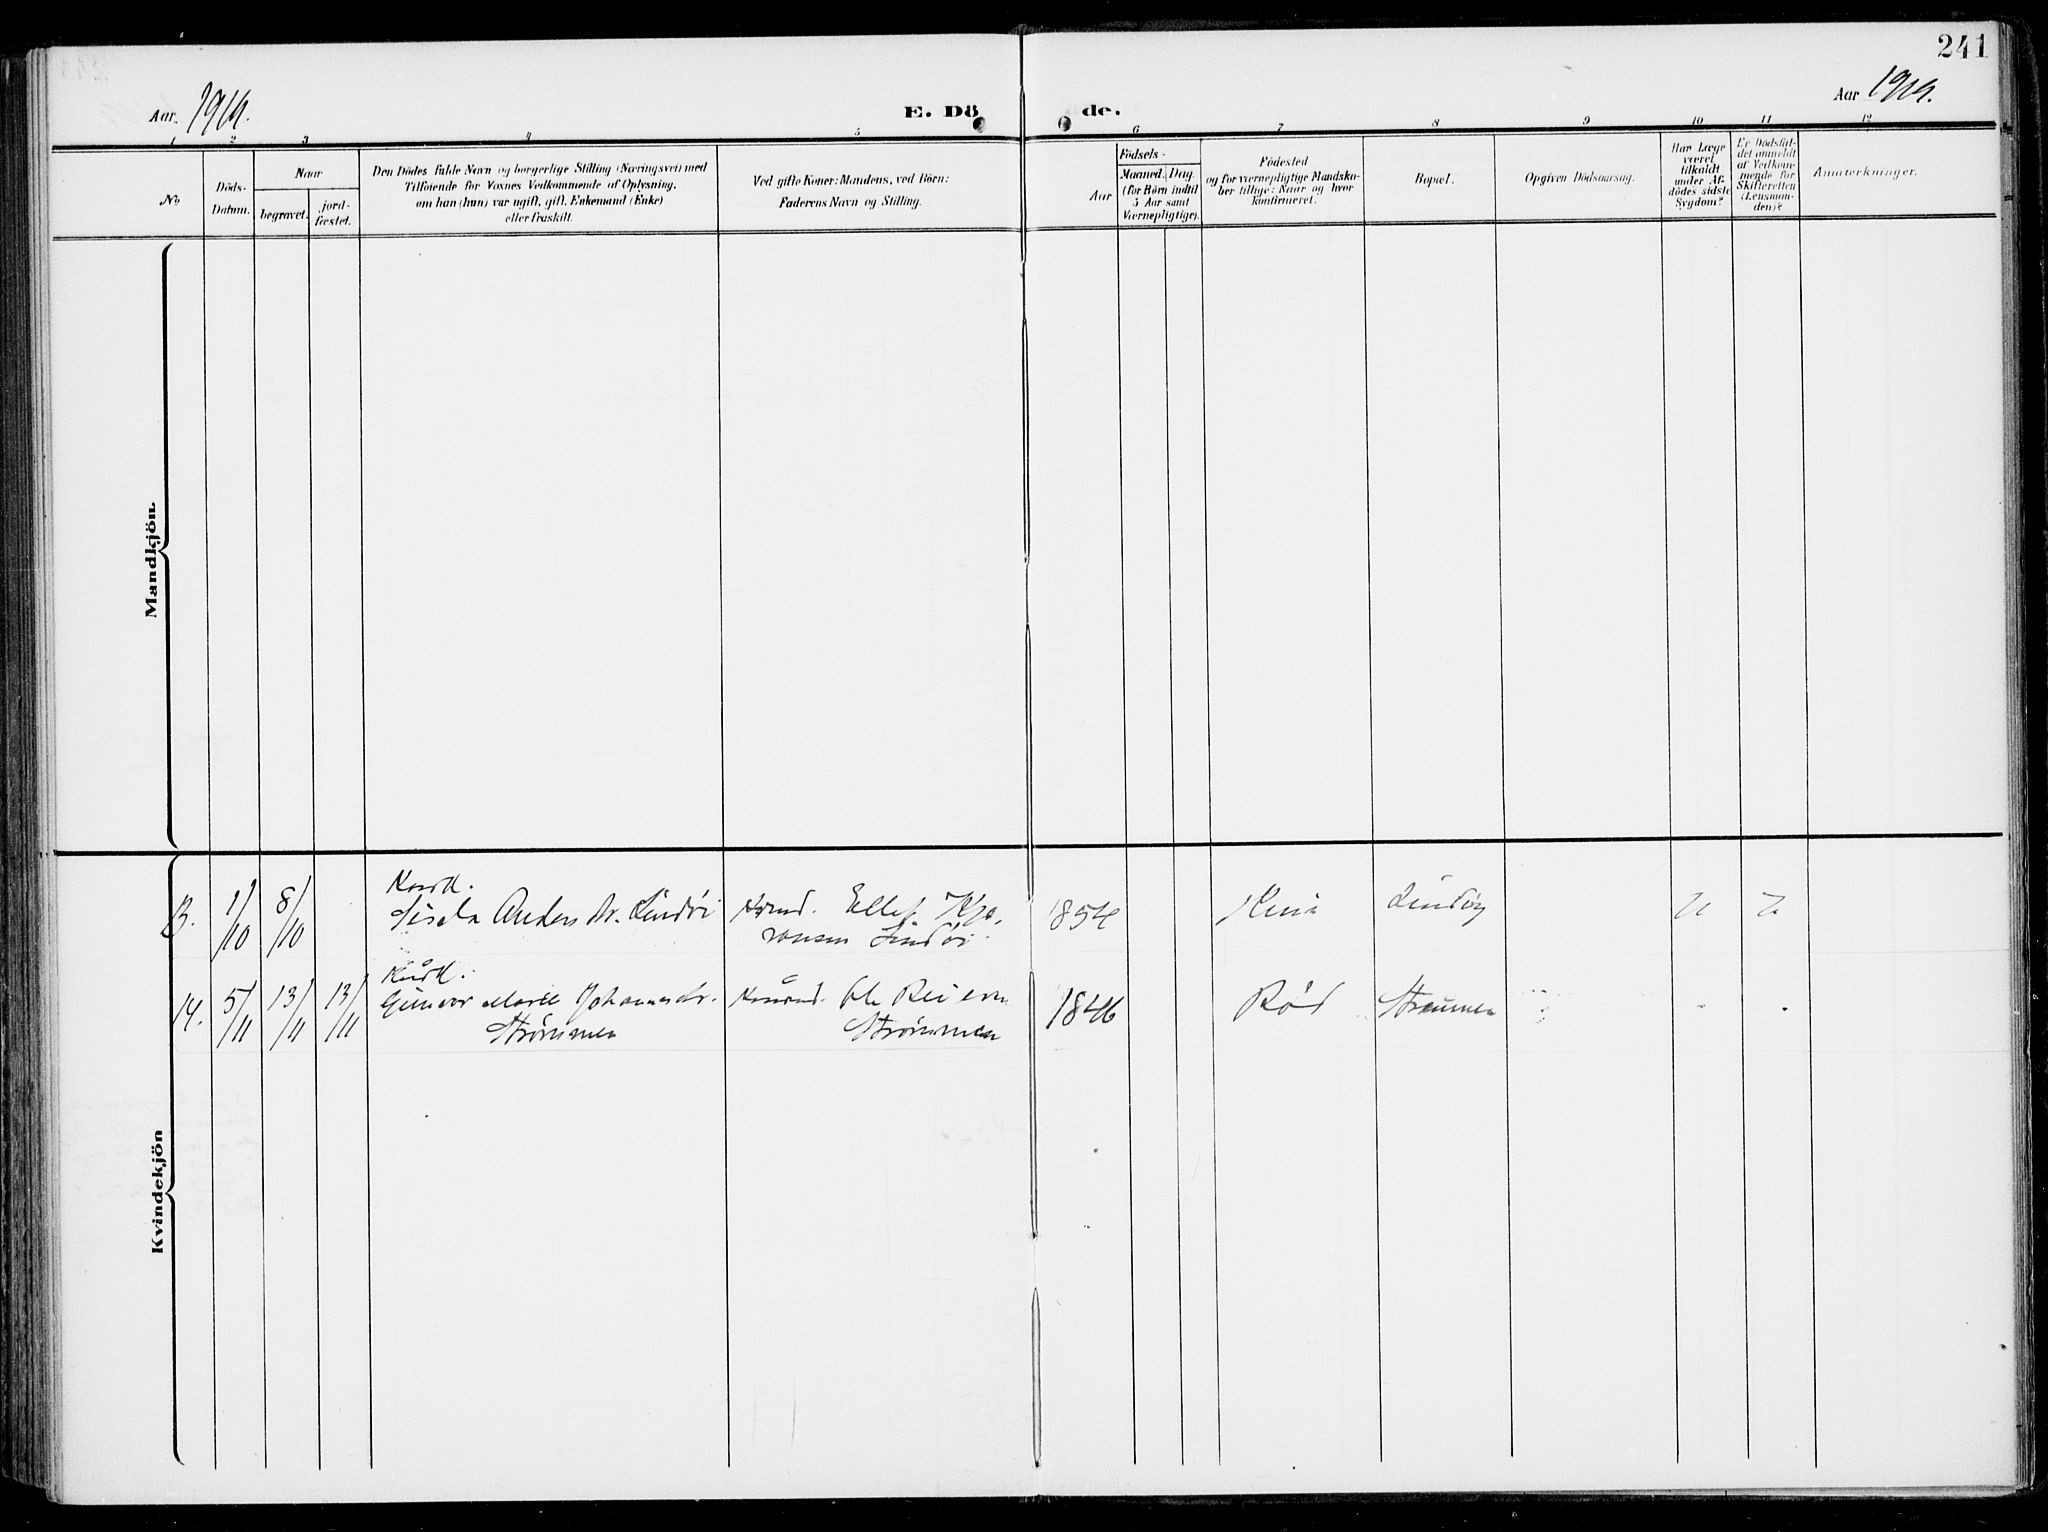 241
Aar 1919.
E. Döde.
Aar 1919.
1 2 3 4 5 6 7 8 9 10 11 12
No
Döds-
Datum.
Naar
begravet.
jord-
fæstet.
Den Dödes fulde Navn og borgerlige Stilling (Næringsvei) med
Tilföiende for Voxnes Vedkommende af Oplysning,
om han (hun) var ugift, gift, Enkemand (Enke)
eller fraskilt.
Ved gifte Koner: Mandens, ved Börn:
Faderens Navn og Stilling.
Aar
Födsels-
Maaned. Dag
(for Börn indtil
5 Aar samt
Værnepligtige).
Födested
og for værnepligtige Mandska-
ber tillige: Naar og hvor
konfirmeret.
Bopæl.
Opgiven Dödsaarsag.
Har Læge
været
tilkaldt
under Af-
dödes sidste
Sygdom?
Er Dödsfal-
det anmeldt
af Vedkom-
mende for
Skifteretten
(Lensman-
den)?
Anmærkninger.
Mandkjön.
Kvindekjön
13. 1/10 8/10 Anders dr. Lindöi Ellef 1854 Lindöy
14. 5/11 13/11 13/11 Gunvor Marie Strömmen Ole Strömmen 1846 Röd Straumen